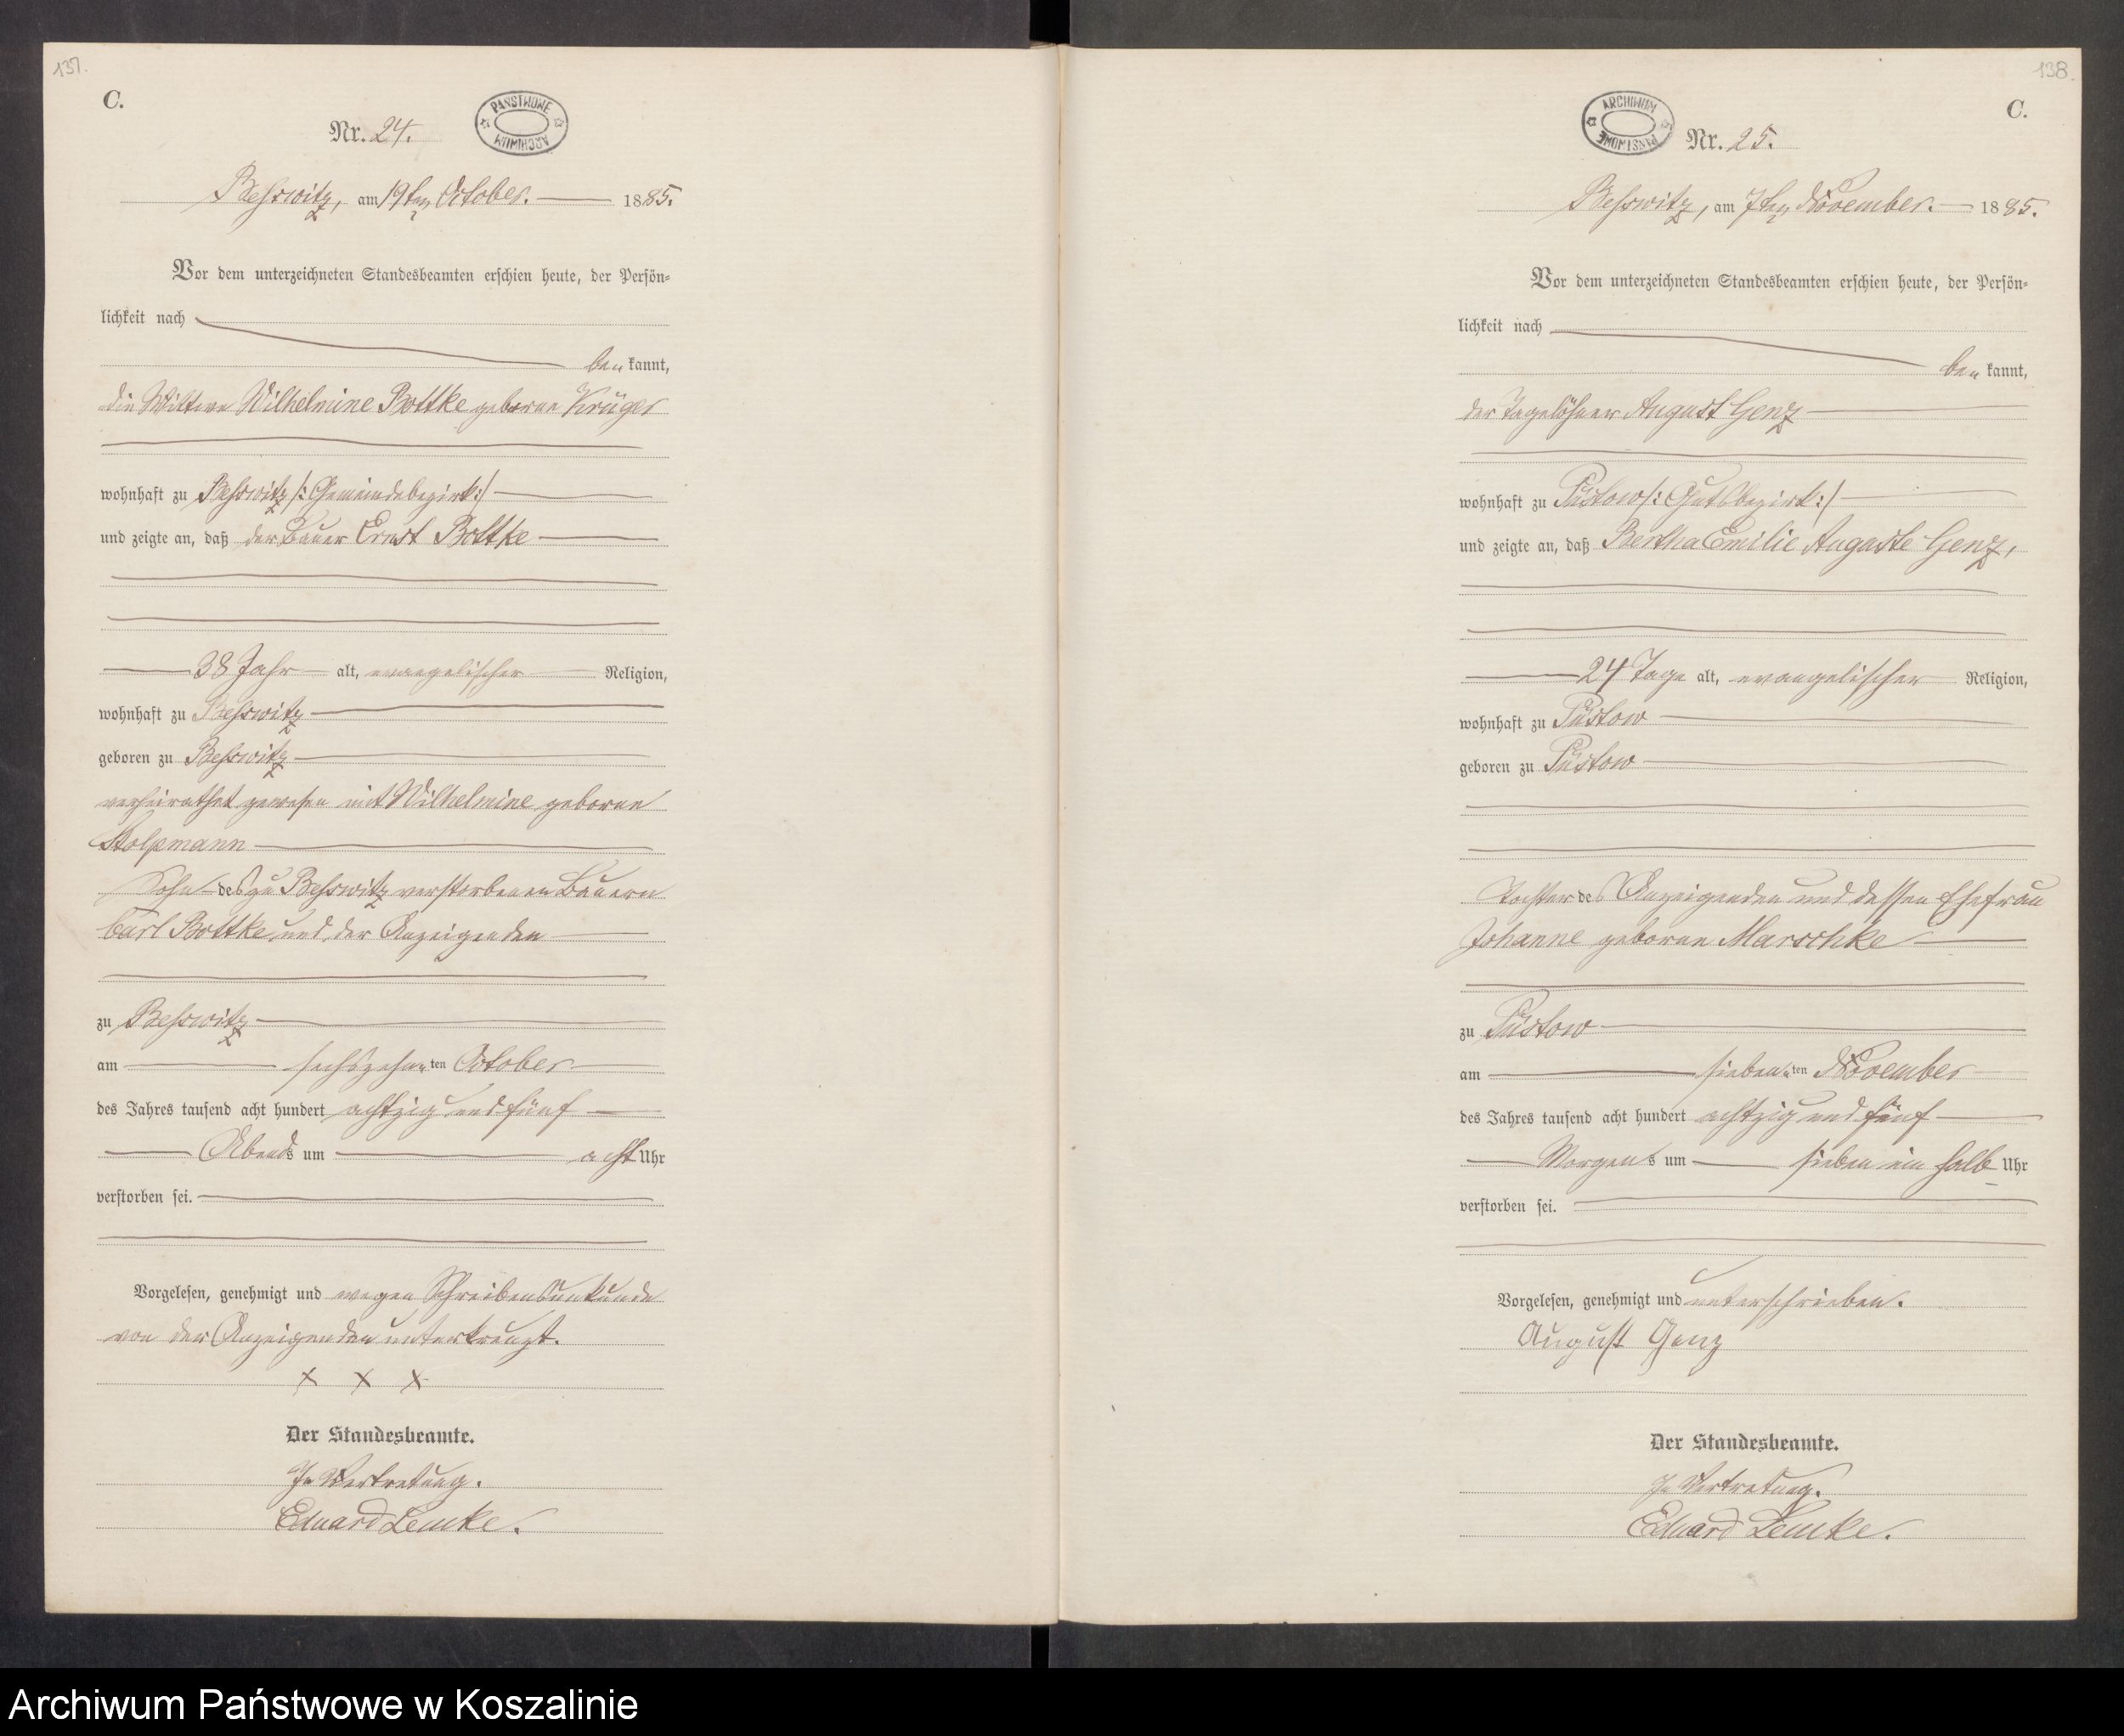 137.
C.
PAŃSTWOWE
ARCHIWUM
Nr. 24.
Beßwitz, am 19ten October. 1885.
Vor dem unterzeichneten Standesbeamten erschien heute, der Persön-
lichkeit nach
bekannt,
die Wittwe Wilhelmine Bottke geborne Krüger
wohnhaft zu Beßwitz /: Gemeindebezirk :/
und zeigte an, daß der Bauer Ernst Bottke
38 Jahr alt, evangelischer Religion,
wohnhaft zu Beßwitz
geboren zu Beßwitz
verheirathet gewesen mit Wilhelmine geborne
Stolpmann
Sohn des zu Beßwitz verstorbenen Bauern
Carl Bottke und der Anzeigenden
zu Beßwitz
am sechszehnten October
des Jahres tausend acht hundert achtzig und fünf
Abends um acht Uhr
verstorben sei.
Vorgelesen, genehmigt und wegen Schreibensunkunde
von der Anzeigenden unterkreuzt.
X X X
Der Standesbeamte.
In Vertretung.
Eduard Lemke.
138.
C.
ARCHIWUM
PAŃSTWOWE
Nr. 25.
Beßwitz, am 7ten November. 1885.
Vor dem unterzeichneten Standesbeamten erschien heute, der Persön-
lichkeit nach
bekannt,
der Tagelöhner August Genz
wohnhaft zu Püstow /: Gutsbezirk :/
und zeigte an, daß Bertha Emilie Auguste Genz,
24 Tage alt, evangelischer Religion,
wohnhaft zu Püstow
geboren zu Püstow
Tochter des Anzeigenden und dessen Ehefrau
Johanne geborne Marschke
zu Püstow
am siebenten November
des Jahres tausend acht hundert achtzig und fünf
Morgens um sieben ein halb Uhr
verstorben sei.
Vorgelesen, genehmigt und unterschrieben.
August Genz
Der Standesbeamte.
In Vertretung.
Eduard Lemke.
Archiwum Państwowe w Koszalinie